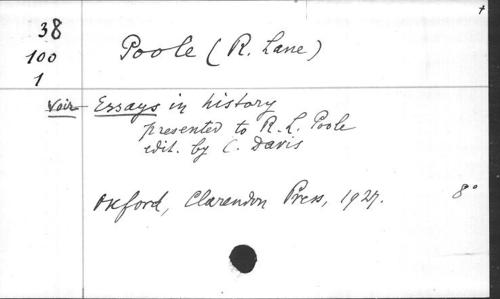 38
100
1
Poole (R. Lane)
Voir Essays in history
presented to R. L. Poole
edit. by C. Davis
Oxford, Clarendon Press, 1927. 8°